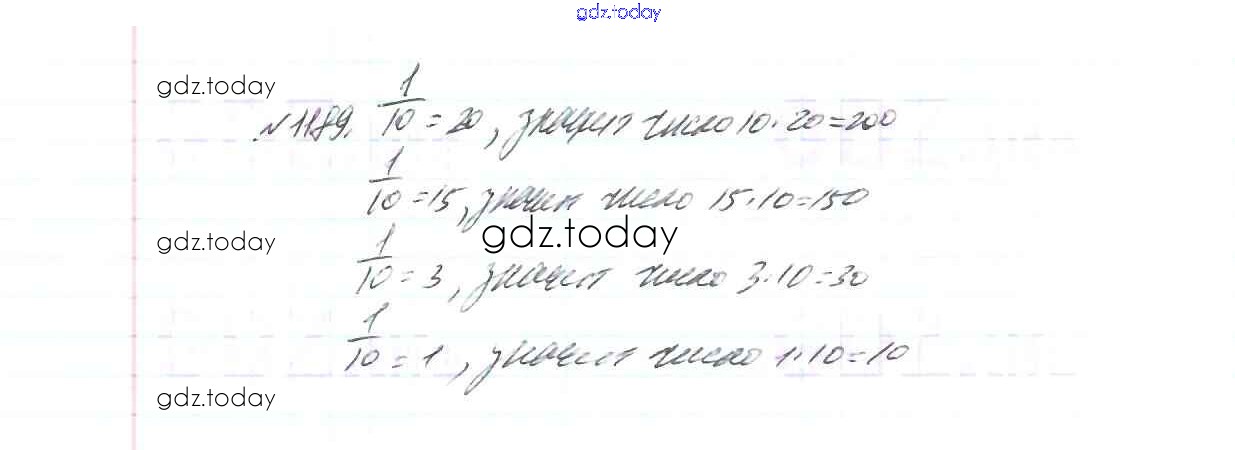 gdz.today
gdz.today
№1189. 1/10 = 20, значит число 10·20=200
1/10 = 15, значит число 15·10=150
gdz.today
gdz.today
1/10 = 3, значит число 3·10=30
1/10 = 1, значит число 1·10=10
gdz.today